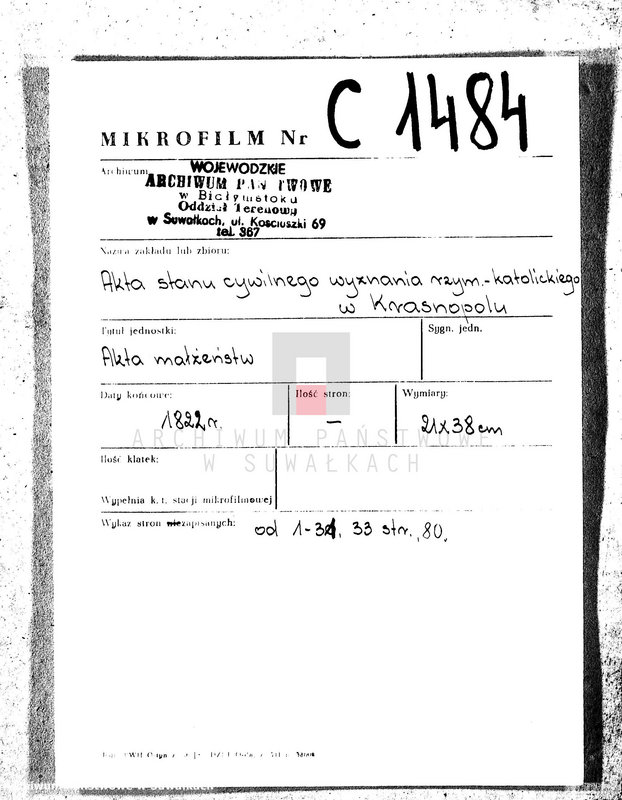 MIKROFILM Nr C 1484
Archiwum
WOJEWODZKIE
ARCHIWUM PAŃSTWOWE
w Białymstoku
Oddział Terenowy
w Suwałkach, ul. Kościuszki 69
tel. 367
Nazwa zakładu lub zbioru:
Akta stanu cywilnego wyznania rzym.-katolickiego
w Krasnopolu
Tytuł jednostki:
Sygn. jedn.
Akta małżeństw
Daty końcowe:
Ilość stron:
Wymiary:
1822 r.
—
21x38 cm
ARCHIWUM PAŃSTWOWE
W SUWAŁKACH
Ilość klatek:
Wypełnia k. t. stacji mikrofilmowej
Wykaz stron niezapisanych:
od 1-31, 33 str. 80.